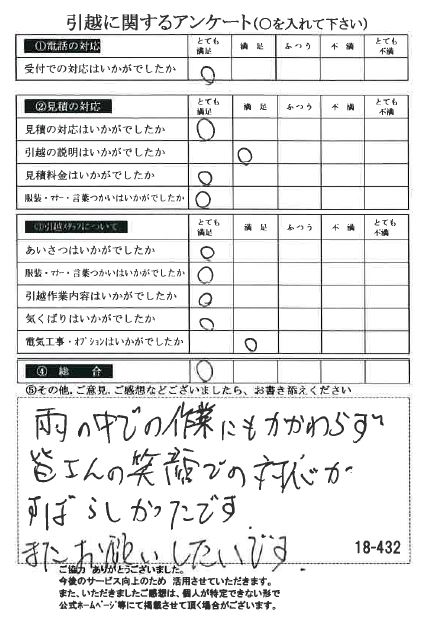 引越に関するアンケート(○を入れて下さい)
①電話の対応 とても満足 満足 ふつう 不満 とても不満
受付での対応はいかがでしたか ○
②見積の対応 とても満足 満足 ふつう 不満 とても不満
見積の対応はいかがでしたか ○
引越の説明はいかがでしたか ○
見積料金はいかがでしたか ○
服装・マナー・言葉つかいはいかがでしたか ○
③引越スタッフについて とても満足 満足 ふつう 不満 とても不満
あいさつはいかがでしたか ○
服装・マナー・言葉つかいはいかがでしたか ○
引越作業内容はいかがでしたか ○
気くばりはいかがでしたか ○
電気工事・オプションはいかがでしたか ○
④総合 ○
⑤その他、ご意見、ご感想などございましたら、お書き添えください
雨の中での作業にもかかわらず
皆さんの笑顔での対応が
すばらしかったです
またお願いしたいです.
18-432
ご協力 ありがとうございました。
今後のサービス向上のため 活用させていただきます。
また、いただきましたご感想は、個人が特定できない形で
公式ホームページ等にて掲載させて頂く場合がございます。